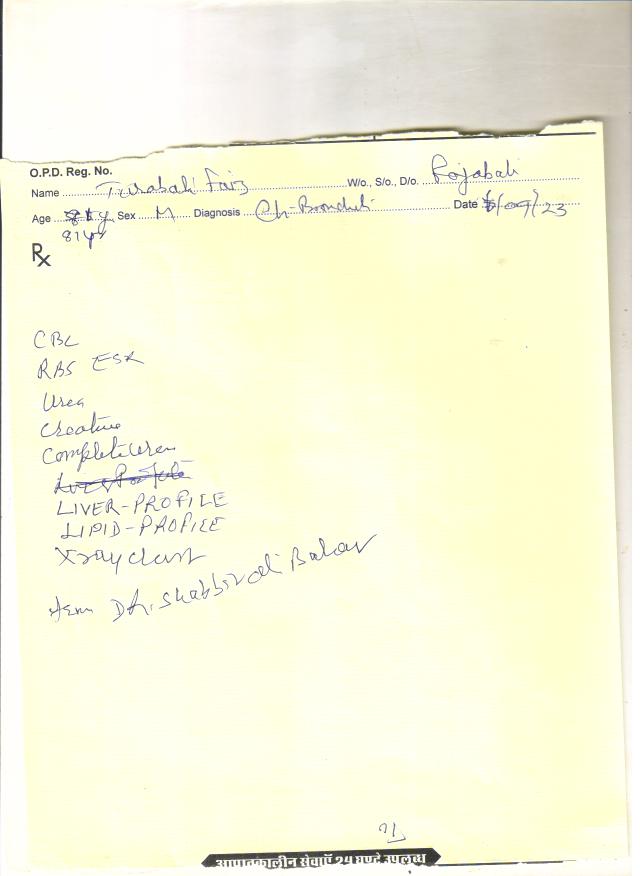 O.P.D. Reg. No.
Name Turabali Faiz W/o., S/o., D/o. Rojabali
Age Sex M Diagnosis Ch-Bronchiti Date /09/23
81 yr
Rx
CBC
RBS ESR
Urea
Creatine
Complete Uren
Liver Profile
LIVER-PROFILE
LIPID-PROFILE
Xray chest
DR. Shabbirali Balar
आपातकालीन सेवाएँ २४ घण्टे उपलब्ध